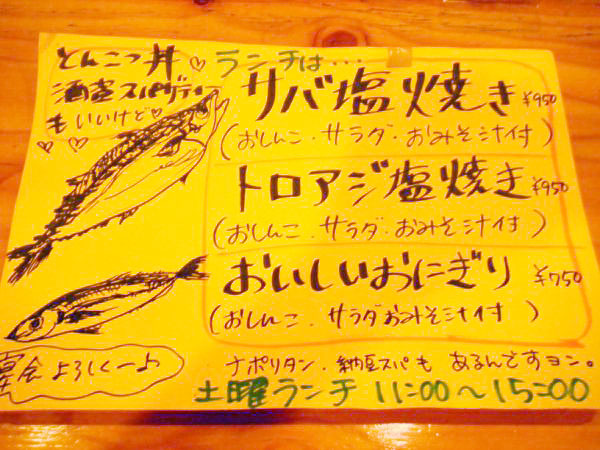 とんこつ丼♡
酒盗スパゲティー
もいいけど♡
ランチは…
サバ塩焼き ¥950
(おしんこ・サラダ・おみそ汁付)
トロアジ塩焼き ¥950
(おしんこ・サラダ・おみそ汁付)
おいしいおにぎり ¥750
(おしんこ・サラダおみそ汁付)
宴会よろしくーよ
ナポリタン・納豆スパも あるんですヨン。
土曜ランチ 11:00～15:00